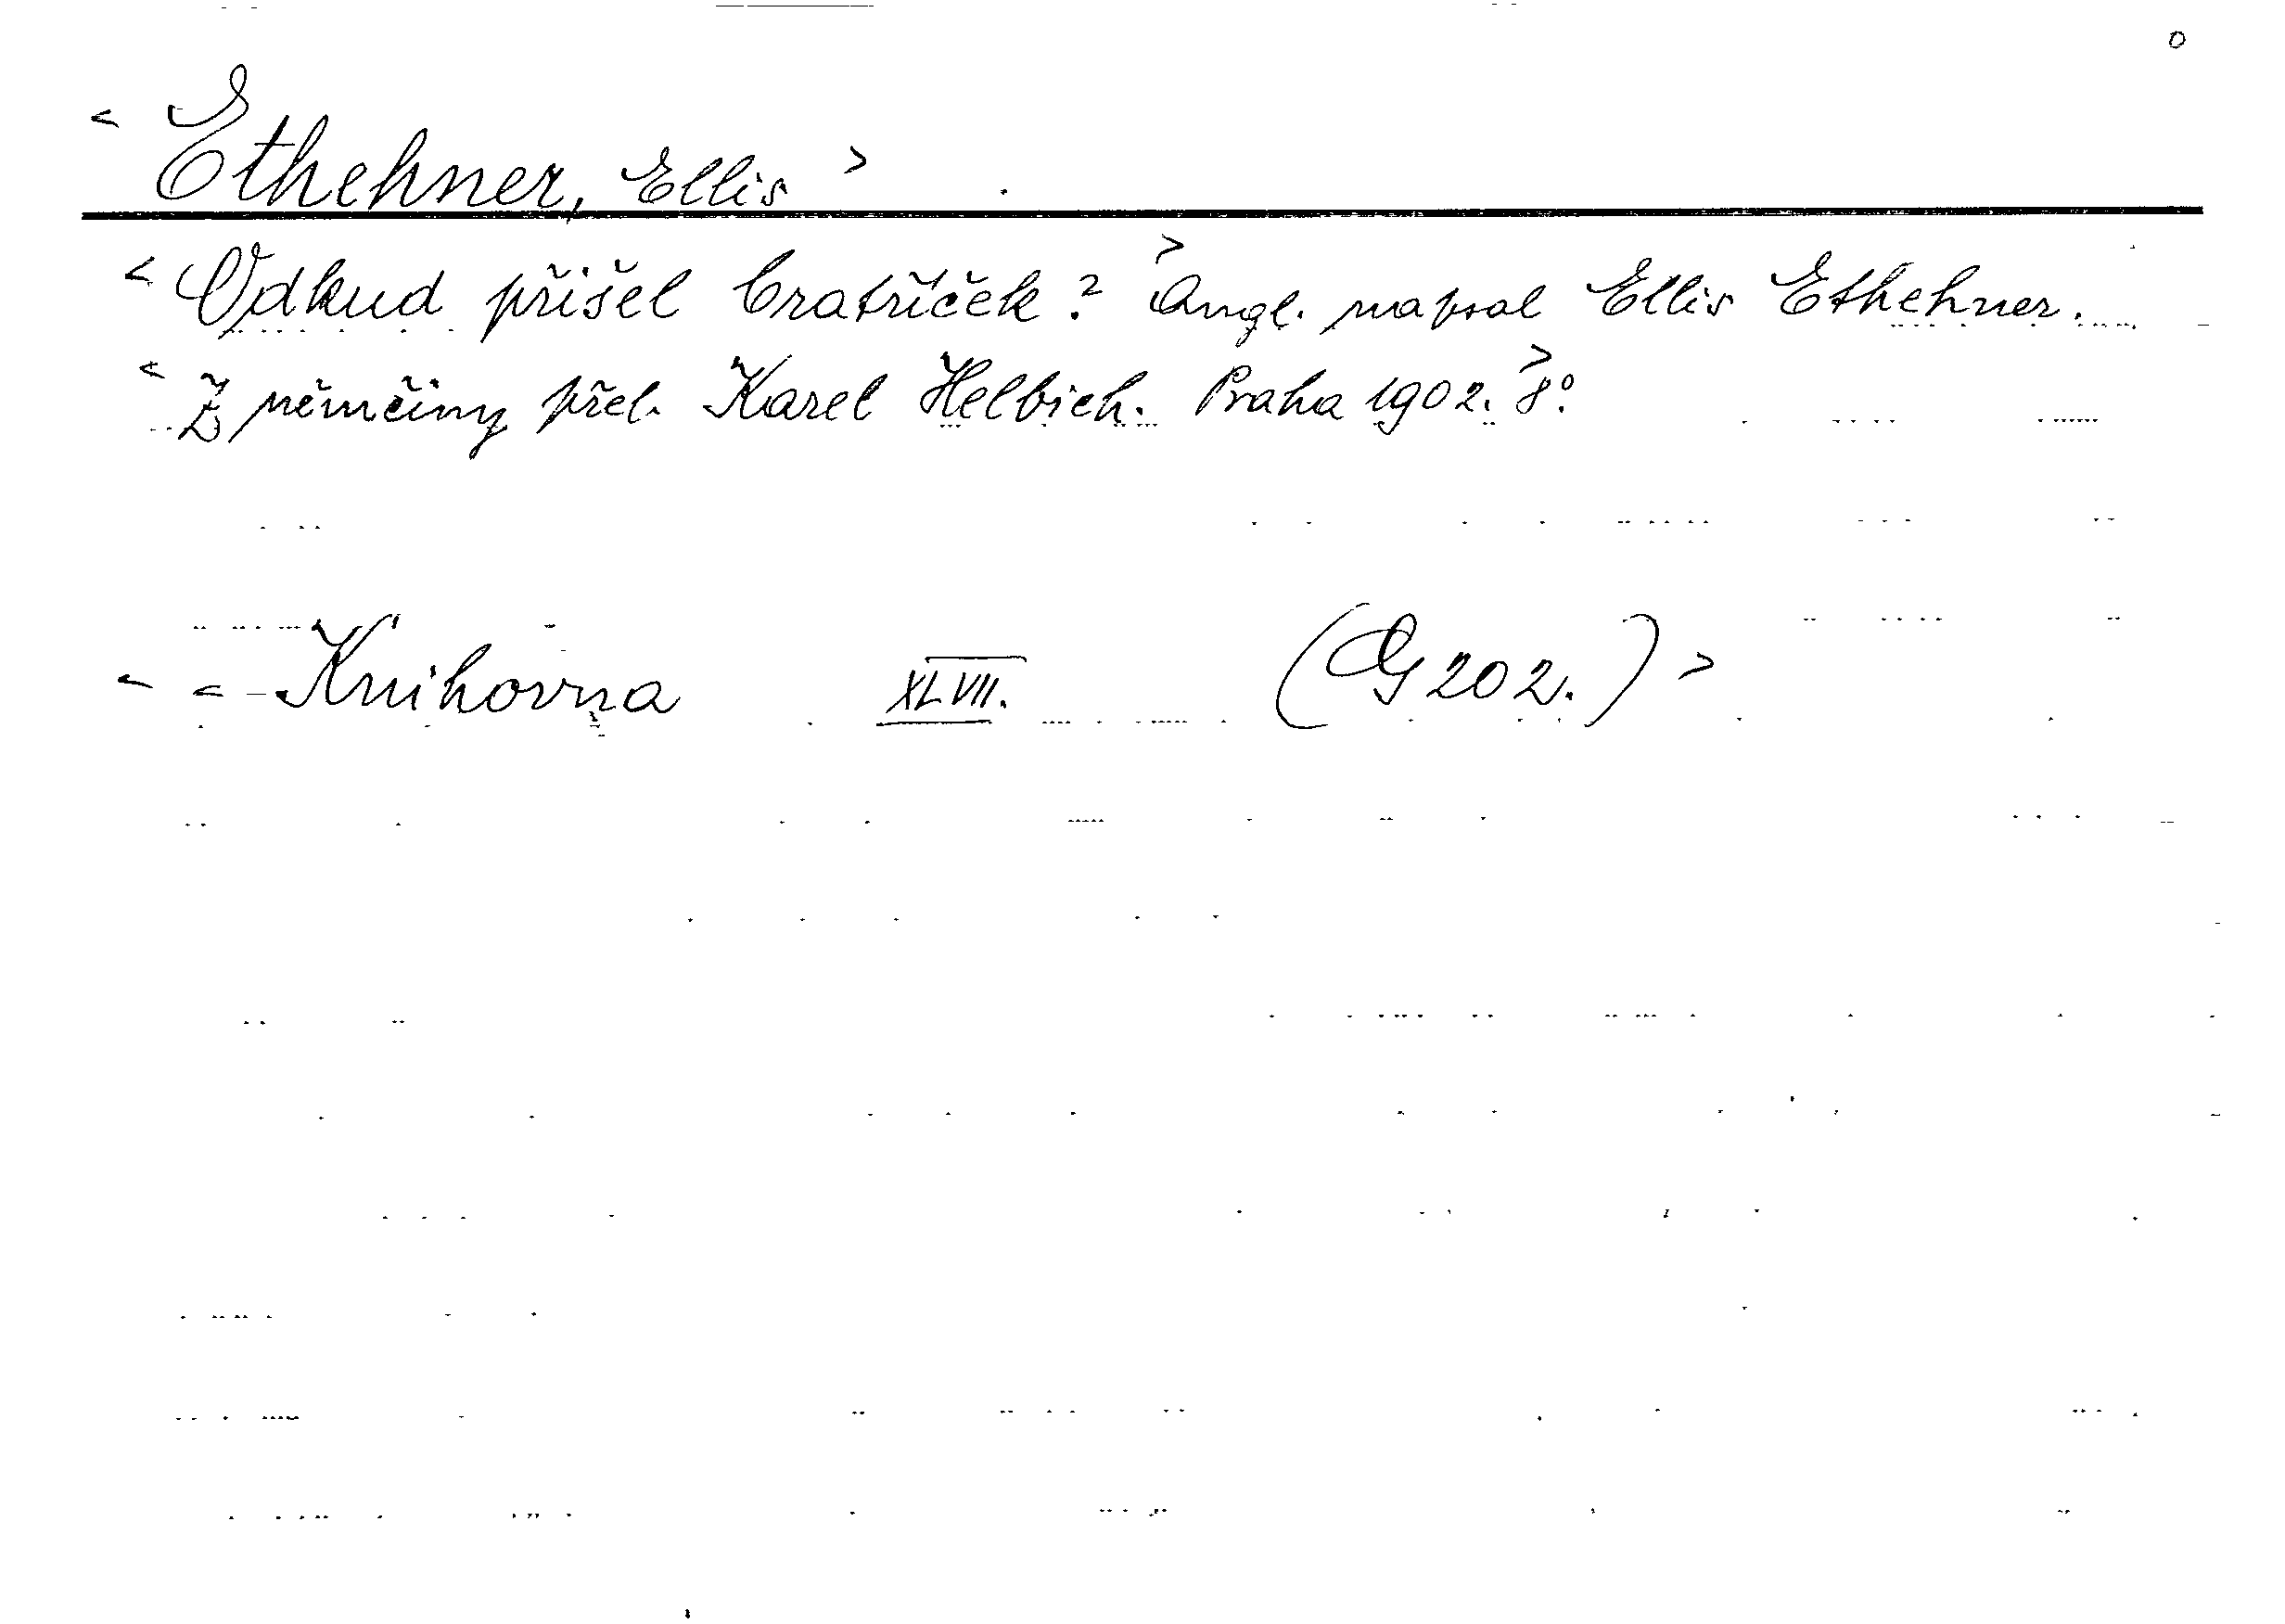 o
< Ethehner, Ellis >
< Odkud přišel bratříček? > Angl. napsal Ellis Ethehner.
< Z němčiny přel. Karel Helbich. Praha 1902. > 8°.
< < Knihovna XLVII. (G 202.) >